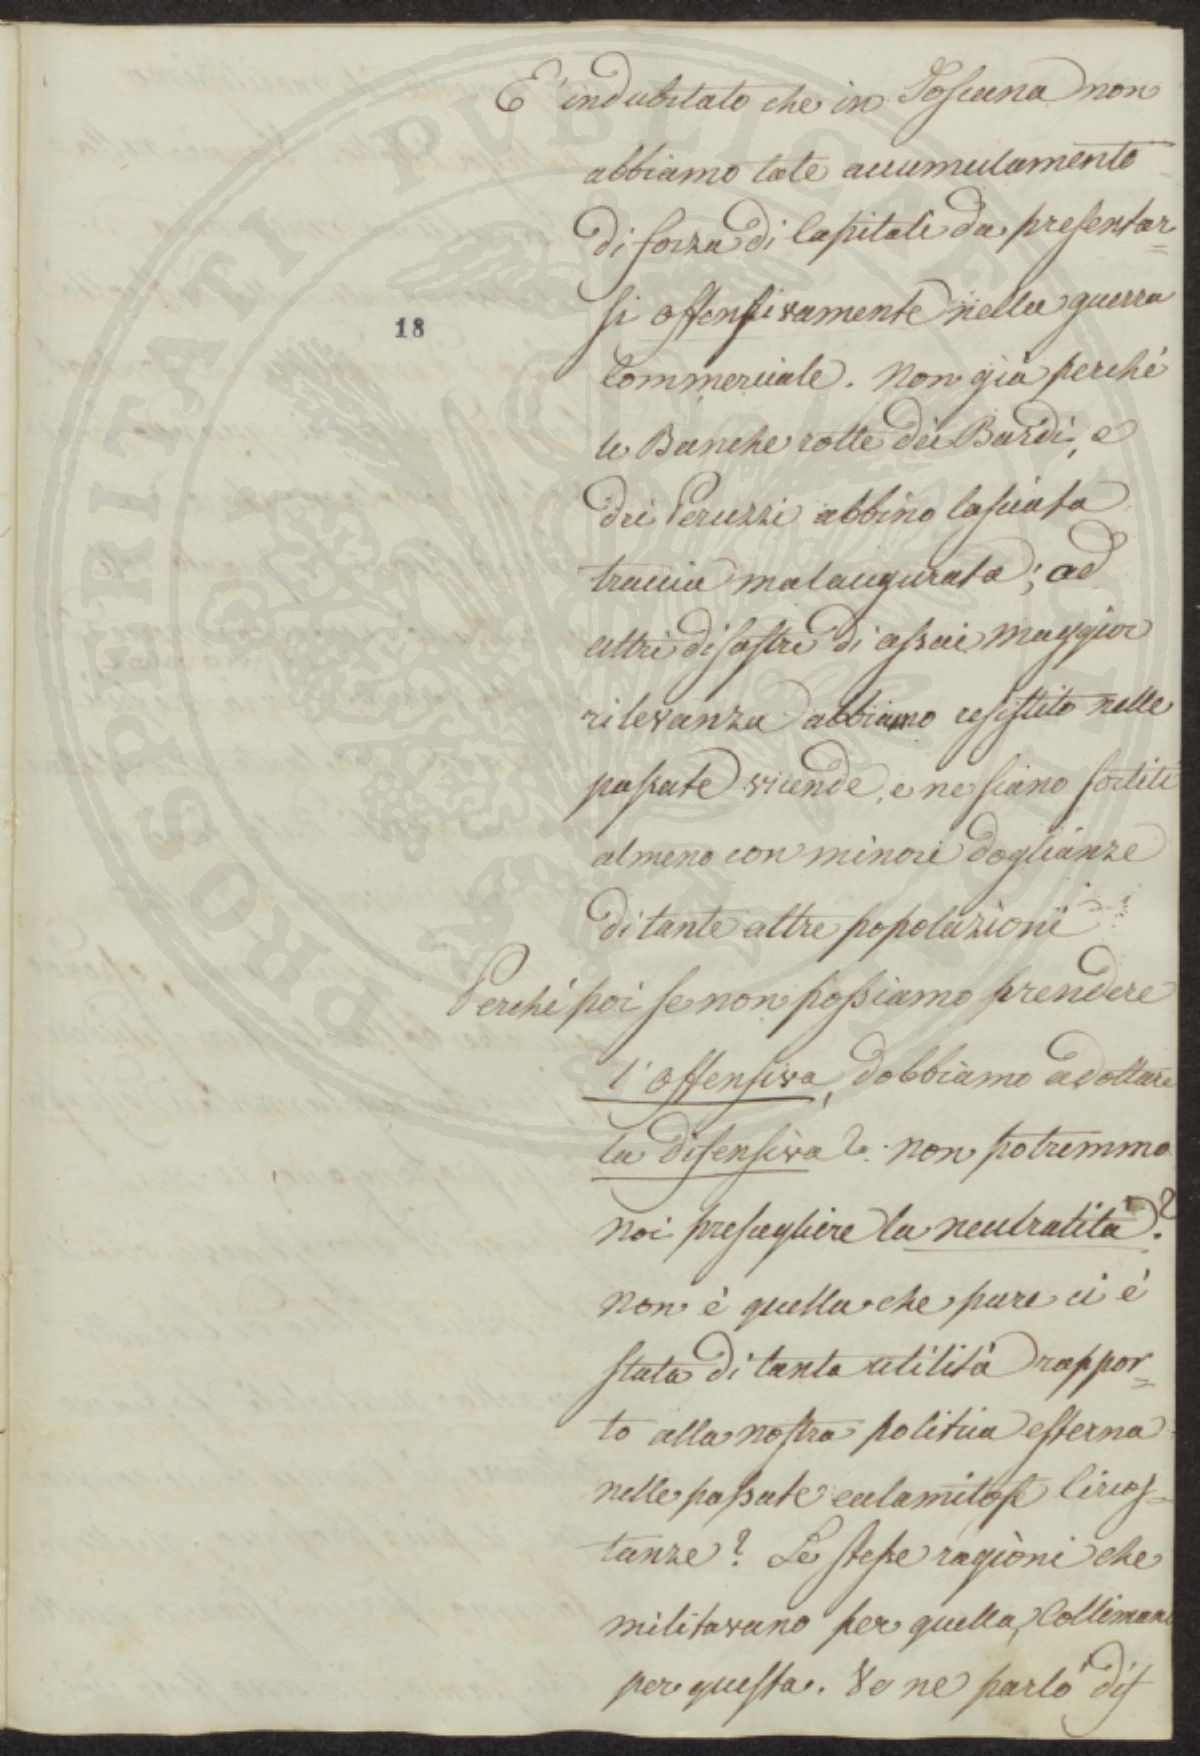 E' indubitato che in Toscana non
abbiamo tale accumulamento
di forza di Capitali da presentar=
si offensivamente nella guerra
18
Commerciale. Non già perché
le Banche rotte dei Bardi, e
dei Peruzzi abbino lasciata
traccia malaugurata; ad
altri disastri di assai maggior
rilevanza abbiamo resistito nelle
passate vicende, e ne siamo sortiti
almeno con minori doglianze
di tante altre popolazioni
Perché poi se non possiamo prendere
l'offensiva, dobbiamo adottare
la difensiva? non potremmo
noi prescegliere la neutralità?
non è quella che pure ci è
stata di tanta utilità rappor=
to alla nostra politica esterna
nelle passate calamitose Circos=
tanze? Le stesse ragioni che
militavano per quella, Collimano
per questa. Ve ne parlò dif
PROSPERITATI PVBLICAE